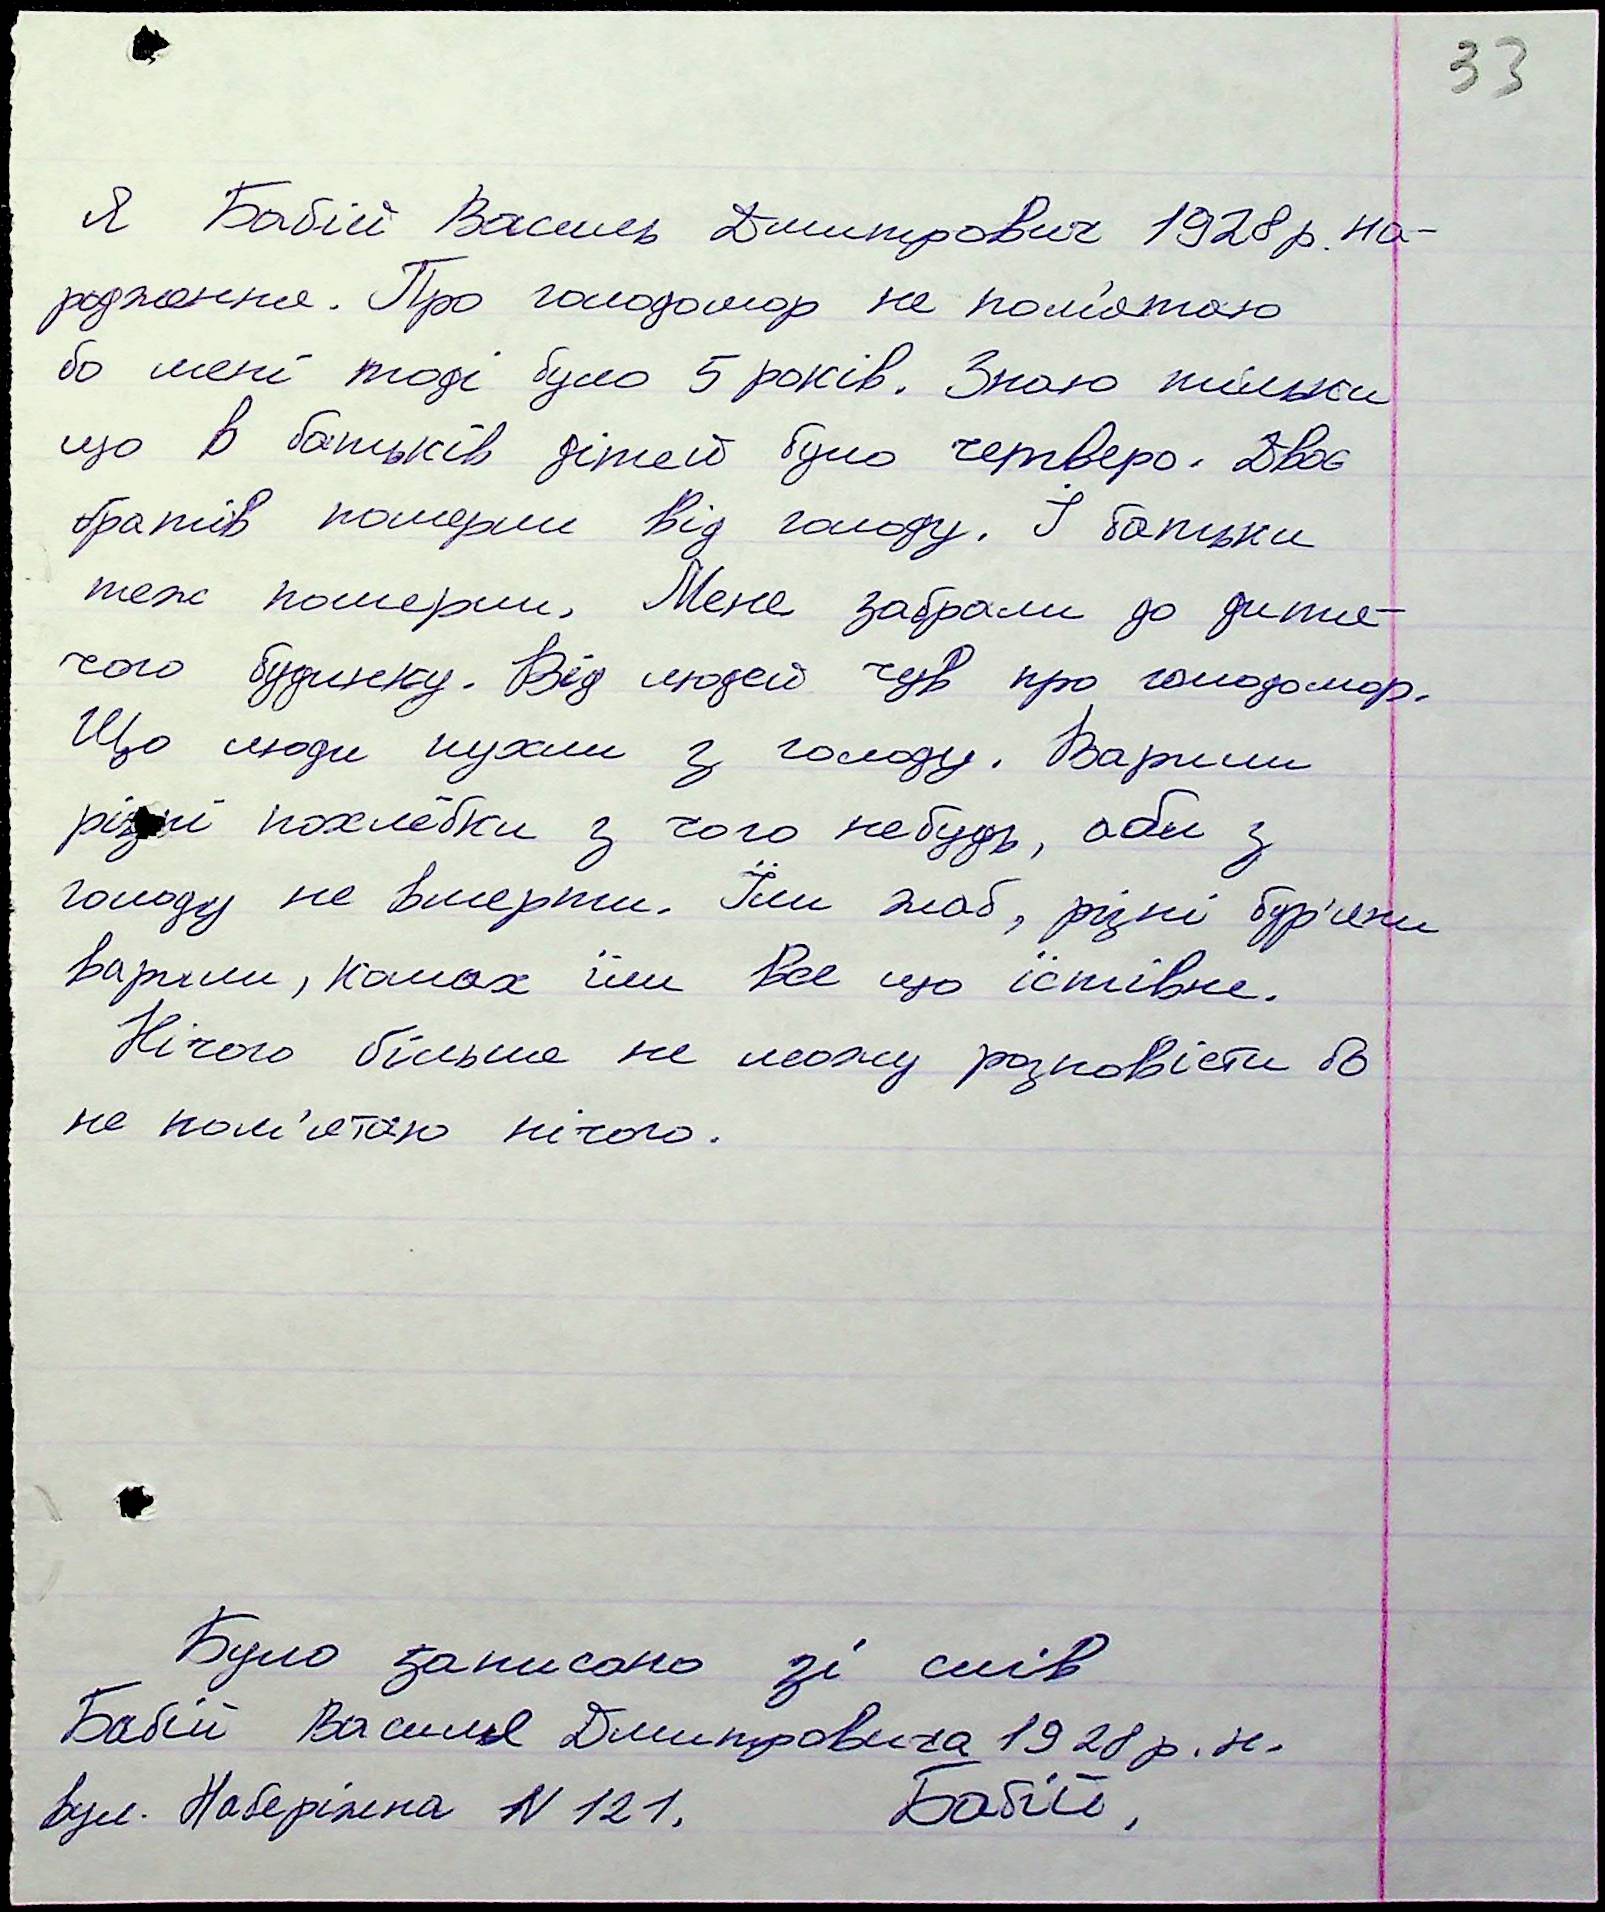 33
Я Бабій Василь Дмитрович 1928 р. на-
родження. Про голодомор не пам'ятаю
бо мені тоді було 5 років. Знаю тільки
що в батьків дітей було четверо. Двоє
братів померли від голоду. І батьки
теж померли. Мене забрали до дитя-
чого будинку. Від людей чув про голодомор.
Що люди пухли з голоду. Варили
різні похлёбки з чого небудь, аби з
голоду не вмерти. Їли жаб, різні бур'яни
варили, комах їли все що їстівне.
Нічого більше не можу розповісти бо
не пам'ятаю нічого.
Було записано зі слів
Бабій Василя Дмитровича 1928 р. н.
вул. Набєріжна N 121. Бабій.